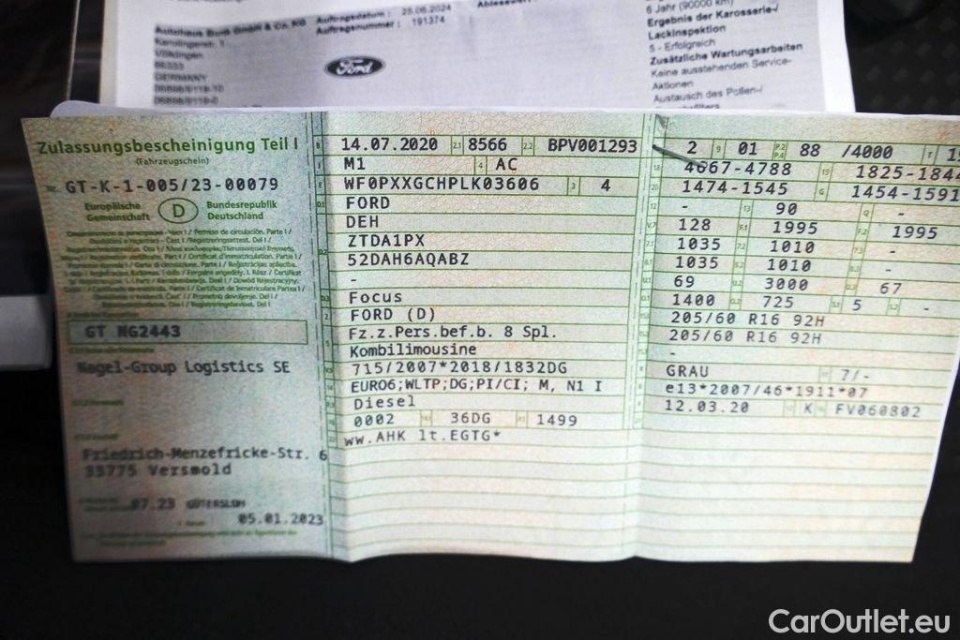 Autohaus Bunk GmbH & Co. KG
Karolingerstr. 1
Völklingen
66333
GERMANY
Auftragsdatum : 25.06.2024
Auftragsnummer : 191374
Ford
6 Jahr (90000 km)
Ergebnis der Karosserie-/
Lackinspektion
5 - Erfolgreich
Zusätzliche Wartungsarbeiten
Keine ausstehenden Service-
Aktionen
Austausch des Pollen-/
Zulassungsbescheinigung Teil I
(Fahrzeugschein)
Nr. GT-K-1-005/23-00079
Europäische Gemeinschaft
D
Bundesrepublik Deutschland
GT NG2443
Nagel-Group Logistics SE
Friedrich-Menzefricke-Str. 6
33775 Versmold
07.23 GÜTERSLOH
05.01.2023
14.07.2020 2.1 8566 2.2 BPV001293
M1 4 AC
WF0PXXGCHPLK03606 3 4
FORD
DEH
ZTDA1PX
52DAH6AQABZ
-
Focus
FORD (D)
Fz.z.Pers.bef.b. 8 Spl.
Kombilimousine
715/2007*2018/1832DG
EURO6;WLTP;DG;PI/CI; M, N1 I
Diesel
0002 36DG 1499
ww.AHK lt.EGTG*
2 9 01 P.2 P.4 88 /4000 T
4667-4788 1825-1844
1474-1545 G 1454-1591
- 90 -
128 1995 1995
1035 1010 -
1035 1010 -
69 3000 67
1400 725 5 -
205/60 R16 92H
205/60 R16 92H
-
GRAU 7/-
e13*2007/46*1911*07
12.03.20 K FV060802
CarOutlet.eu